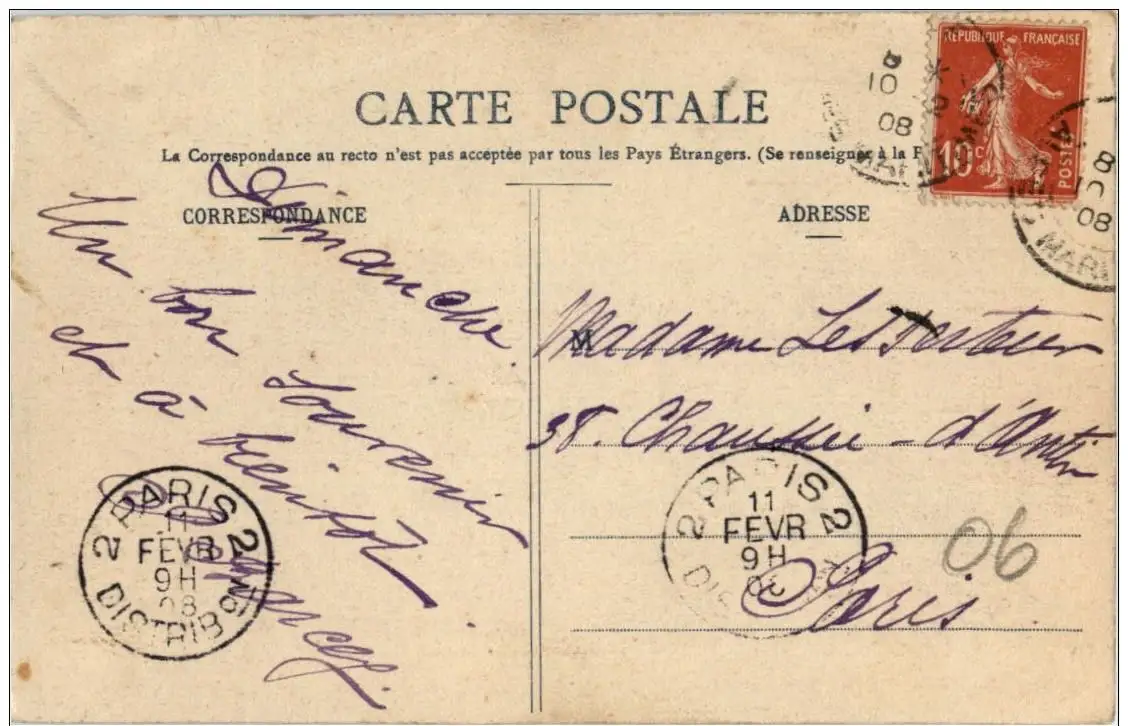 CARTE POSTALE
La Correspondance au recto n'est pas acceptée par tous les Pays Étrangers. (Se renseigner à la P
CORRESPONDANCE
Dimanche.
Un bon souvenir
et à bientôt
ADRESSE
M
Madame
38. Chaussée-d'Antin
Paris
06
RÉPUBLIQUE FRANÇAISE
10c
POSTES
10
08
MARI
8
10
08
MARI
2 PARIS 2
11
FEVR
9H
08
DISTRIBON
2 PARIS 2
11
FEVR
9H
DIS